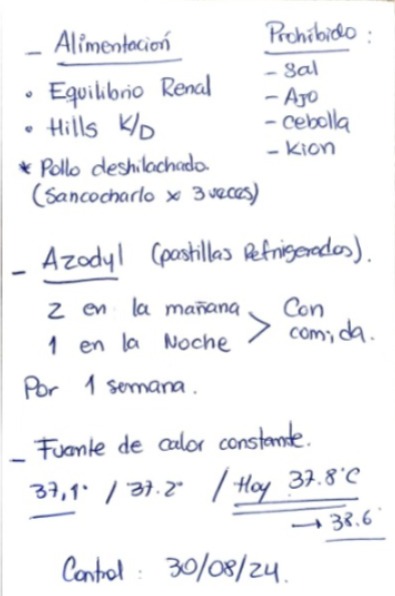 - Alimentación
• Equilibrio Renal
• Hills K/D
* Pollo deshilachado.
(Sancocharlo x 3 veces)
Prohibido:
- Sal
- Ajo
- Cebolla
- Kion
- Azodyl (pastillas Refrigeradas).
2 en la mañana
1 en la Noche > Con comida.
Por 1 semana.
- Fuente de calor constante.
37,1° / 37.2° / Hoy 37.8°C
→ 38.6°
Control: 30/08/24.